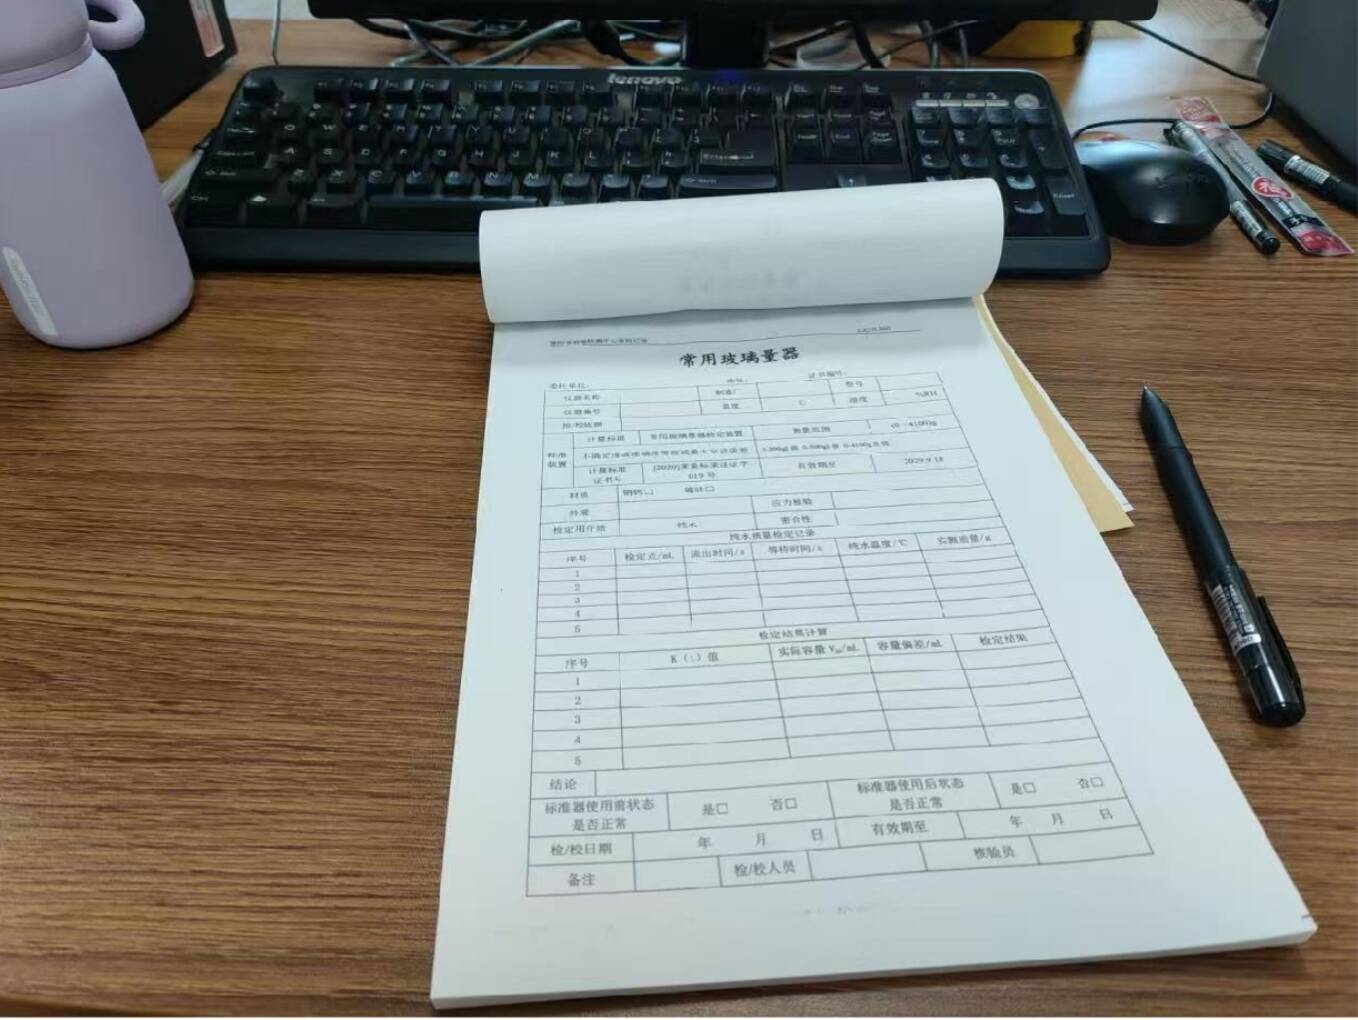 lenovo
常用玻璃量器
委托单位： 地址： 证书编号：
仪器名称 制造/ 型号
仪器编号 温度 ℃ 湿度 %RH
检/校依据
标准装置 计量标准 常用玻璃量器检定装置 测量范围 (0—4100)g
不确定度或准确度等级或最大允许误差
计量标准证书号 [2020] 量标 证字 019号 有效期至 2029.9.18
材质 钠钙□ 硼硅□
外观 应力检验
检定用介质 纯水 密合性
纯水质量检定记录
序号 检定点/mL 流出时间/s 等待时间/s 纯水温度/℃ 实测质量/g
1
2
3
4
5
检定结果计算
序号 K（:）值 实际容量 V₂₀/mL 容量偏差/mL 检定结果
1
2
3
4
5
结论
标准器使用前状态是否正常 是□ 否□ 标准器使用后状态是否正常 是□ 否□
检/校日期 年 月 日 有效期至 年 月 日
备注 检/校人员 核验员